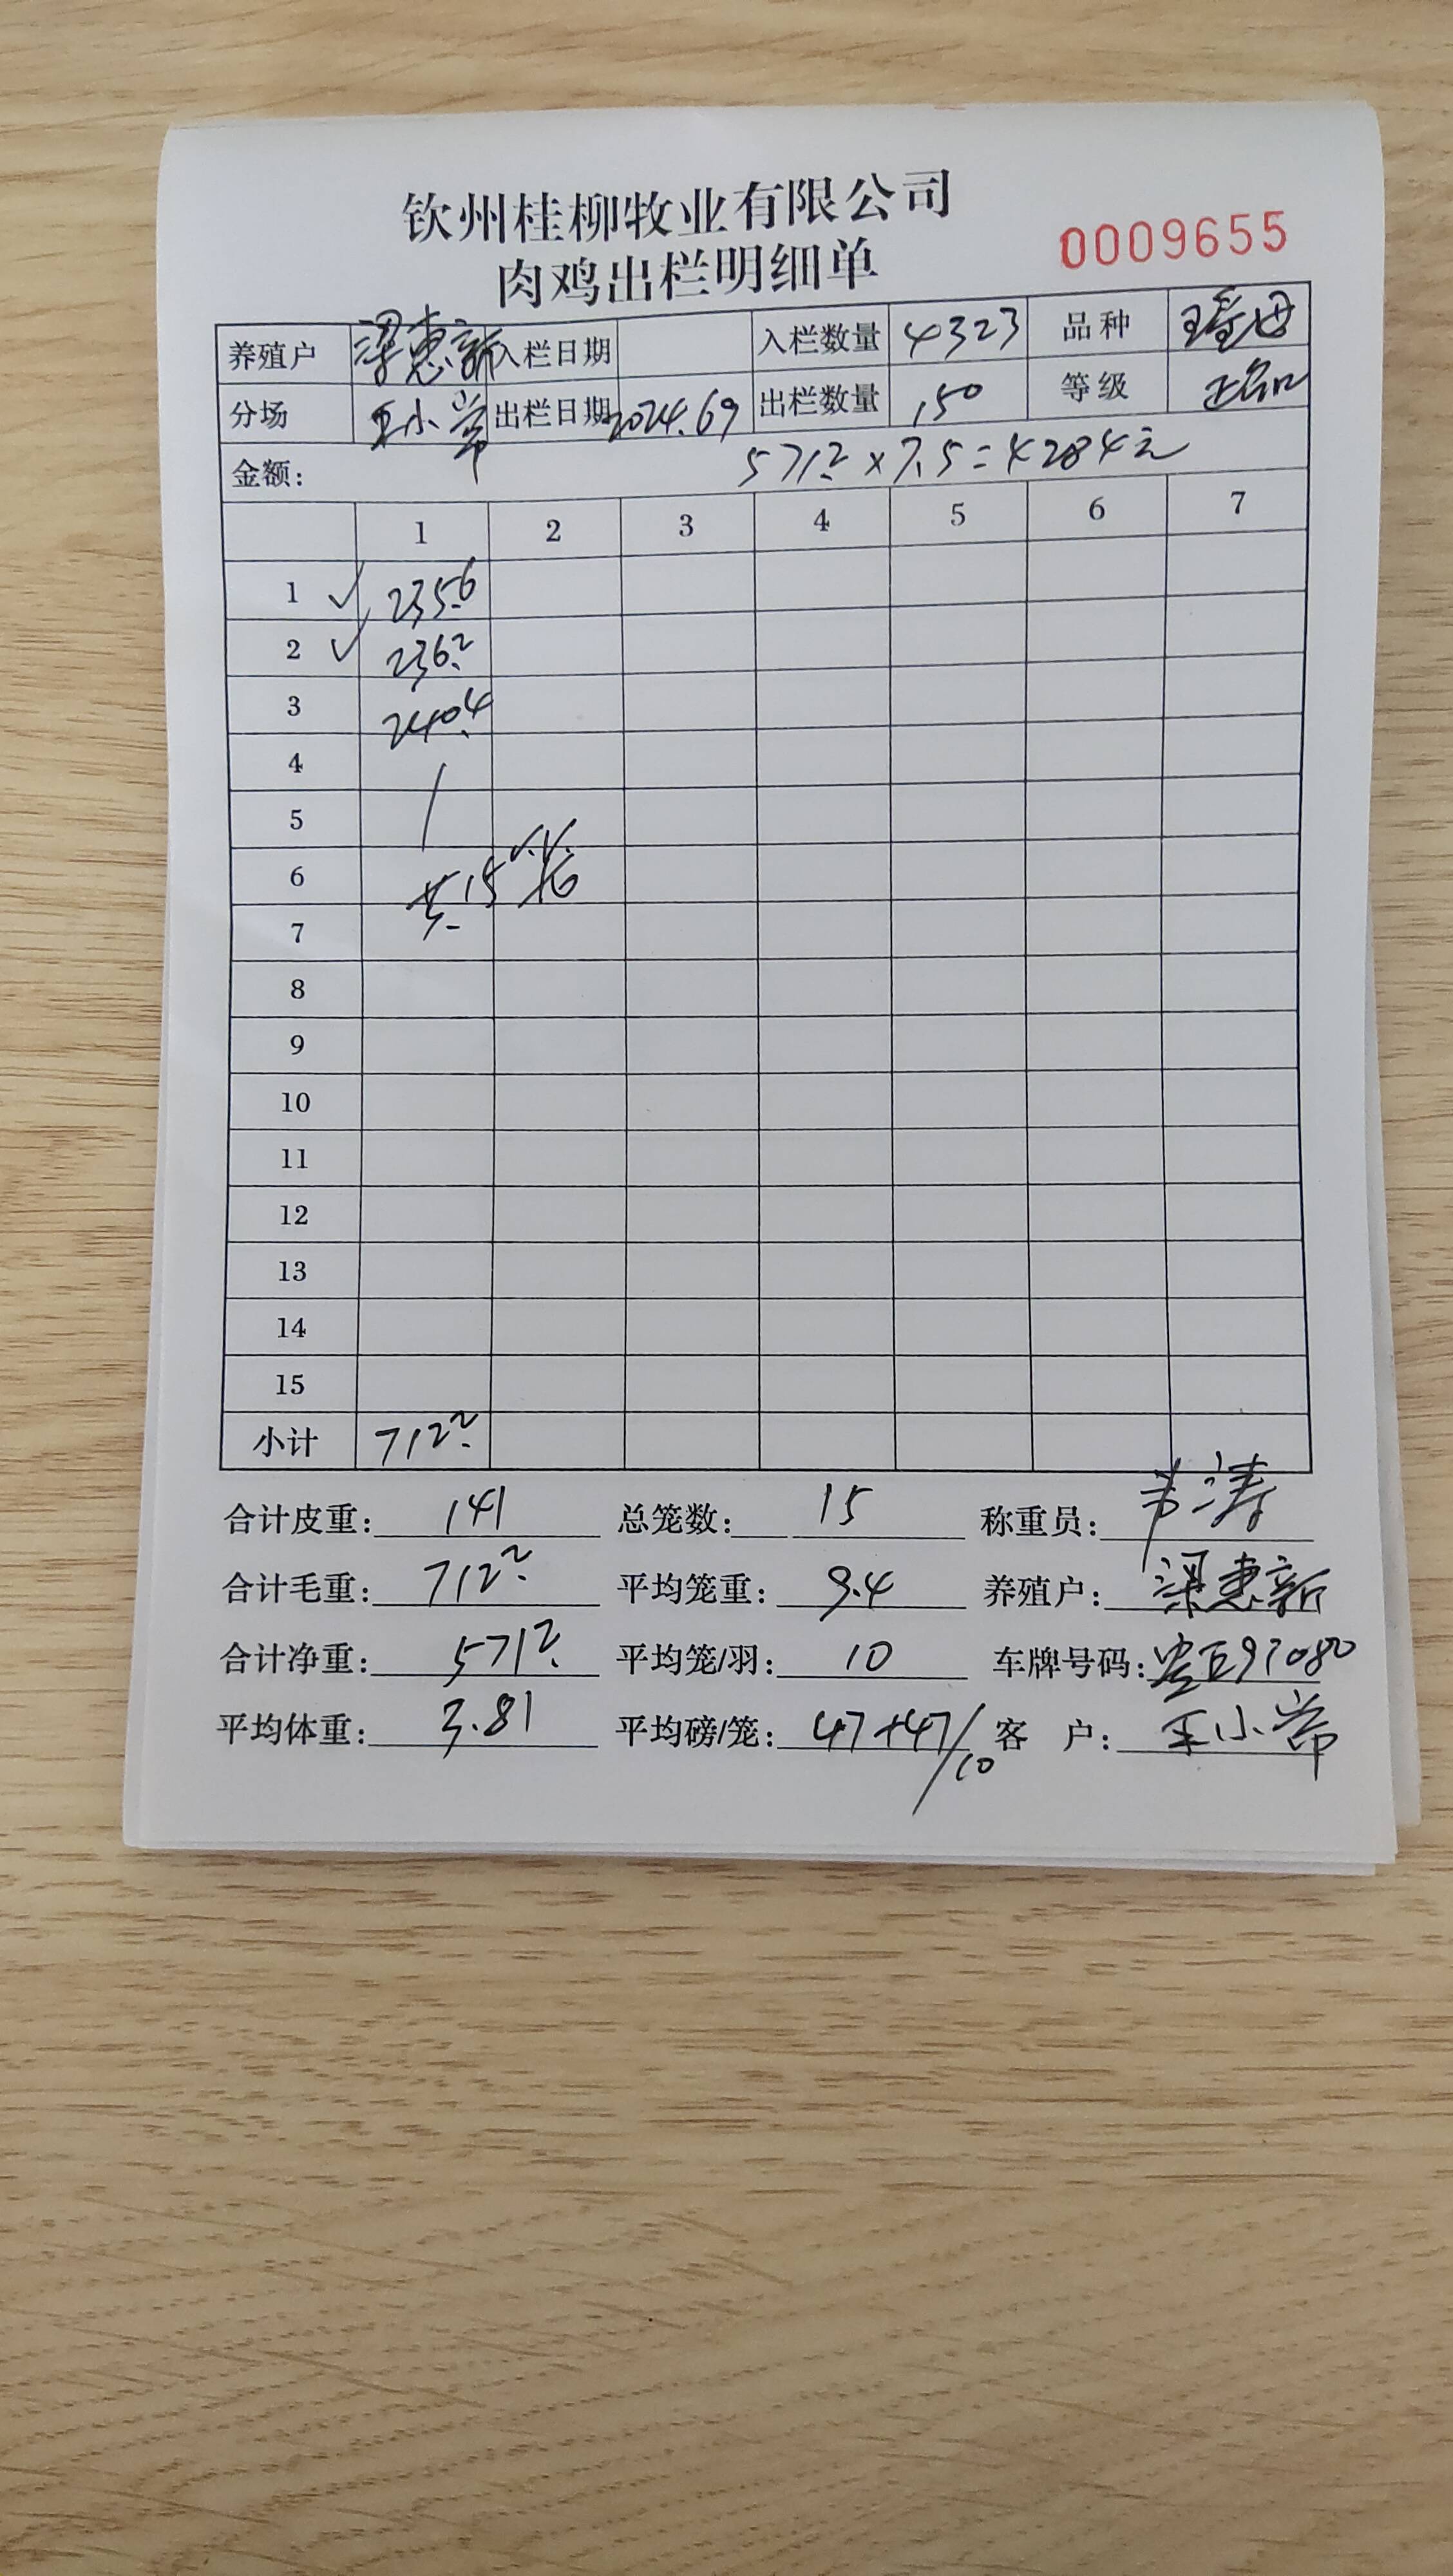 钦州桂柳牧业有限公司
肉鸡出栏明细单
0009655
养殖户 梁惠新 入栏日期 入栏数量 4323 品种 瑶母
分场 王小常 出栏日期 2024.6.9 出栏数量 150 等级 正品
金额: 571.2×7.5=4284元
1 2 3 4 5 6 7
1 ✓ 235.6
2 ✓ 236.2
3 240.4
4
5
6 共15笼
7
8
9
10
11
12
13
14
15
小计 712.2
合计皮重: 141 总笼数: 15 称重员: 涛
合计毛重: 712.2 平均笼重: 9.4 养殖户: 梁惠新
合计净重: 571.2 平均笼/羽: 10 车牌号码: 97080
平均体重: 3.81 平均磅/笼: 47+47/10 客 户: 王小常